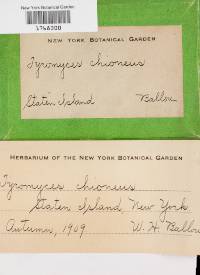 New York Botanical Garden
NEW YORK BOTANICAL GARDEN
Tyromyces chioneus
Staten Island Ballou
HERBARIUM OF THE NEW YORK BOTANICAL GARDEN
Tyromyces chioneus
Staten Island, New York
Autumn, 1909 W. H. Ballou